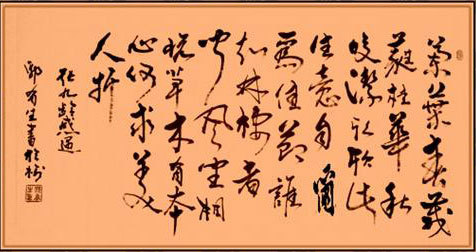 蘭葉春葳
蕤桂華秋
皎潔欣欣此
生意自爾
為佳節誰
知林棲者
聞風坐相
悅草木有本
心何求美
人折
張九齡感遇
有生書於